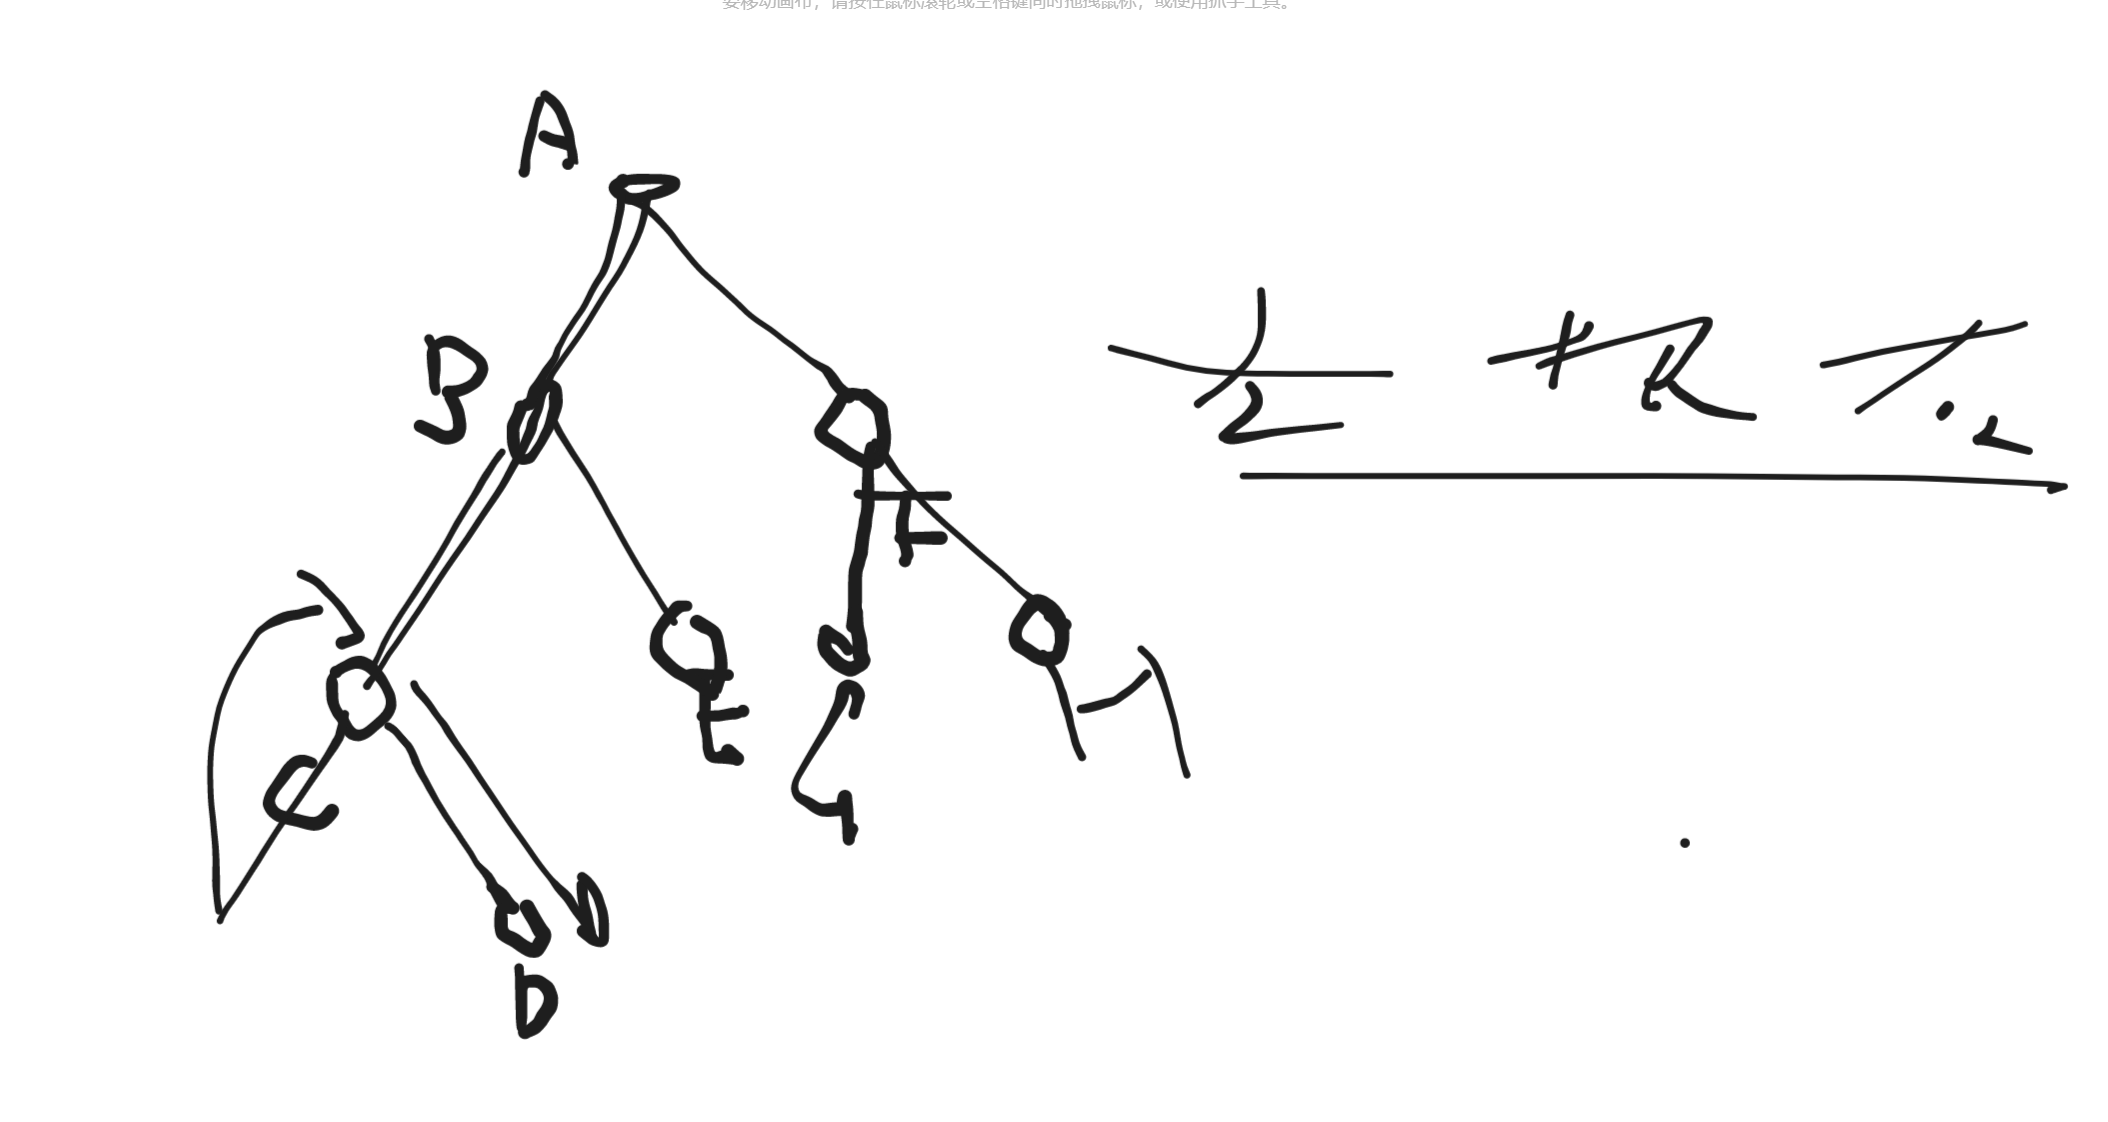 要移动画布，请按住鼠标滚轮或空格键同时拖拽鼠标，或使用抓手工具。
A
B
F
C
E
G
H
D